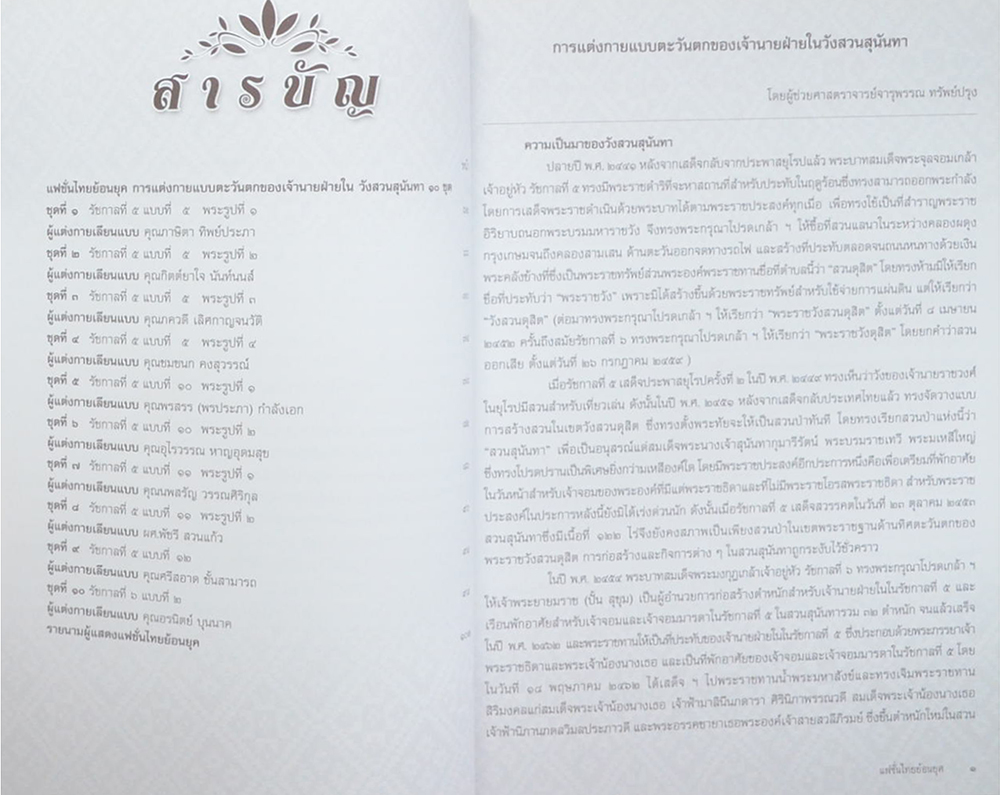 สารบัญ
แฟชั่นไทยย้อนยุค การแต่งกายแบบตะวันตกของเจ้านายฝ่ายใน วังสวนสุนันทา ๑๐ ชุด
ชุดที่ ๑ รัชกาลที่ ๕ แบบที่ ๕ พระรูปที่ ๑
ผู้แต่งกายเลียนแบบ คุณภาษิตา ทิพย์ประภา
ชุดที่ ๒ รัชกาลที่ ๕ แบบที่ ๕ พระรูปที่ ๒
ผู้แต่งกายเลียนแบบ คุณกิตต์ยาใจ นันท์นนส์
ชุดที่ ๓ รัชกาลที่ ๕ แบบที่ ๕ พระรูปที่ ๓
ผู้แต่งกายเลียนแบบ คุณภควดี เลิศกาญจนวัติ
ชุดที่ ๔ รัชกาลที่ ๕ แบบที่ ๕ พระรูปที่ ๔
ผู้แต่งกายเลียนแบบ คุณชมชนก คงสุวรรณ์
ชุดที่ ๕ รัชกาลที่ ๕ แบบที่ ๑๐ พระรูปที่ ๑
ผู้แต่งกายเลียนแบบ คุณพรสรร (พรประภา) กำลังเอก
ชุดที่ ๖ รัชกาลที่ ๕ แบบที่ ๑๐ พระรูปที่ ๒
ผู้แต่งกายเลียนแบบ คุณอุไรวรรณ หาญอุดมสุข
ชุดที่ ๗ รัชกาลที่ ๕ แบบที่ ๑๑ พระรูปที่ ๑
ผู้แต่งกายเลียนแบบ คุณนพสรัญ วรรณศิริกุล
ชุดที่ ๘ รัชกาลที่ ๕ แบบที่ ๑๑ พระรูปที่ ๒
ผู้แต่งกายเลียนแบบ ผศ.พัชรี สวนแก้ว
ชุดที่ ๙ รัชกาลที่ ๕ แบบที่ ๑๒
ผู้แต่งกายเลียนแบบ คุณศรีสอาด ชั้นสามารถ
ชุดที่ ๑๐ รัชกาลที่ ๖ แบบที่ ๒
ผู้แต่งกายเลียนแบบ คุณอรนิตย์ บุนนาค
รายนามผู้แสดงแฟชั่นไทยย้อนยุค
การแต่งกายแบบตะวันตกของเจ้านายฝ่ายในวังสวนสุนันทา
โดยผู้ช่วยศาสตราจารย์จารุพรรณ ทรัพย์ปรุง
ความเป็นมาของวังสวนสุนันทา
ปลายปี พ.ศ. ๒๔๔๑ หลังจากเสด็จกลับจากประพาสยุโรปแล้ว พระบาทสมเด็จพระจุลจอมเกล้า
เจ้าอยู่หัว รัชกาลที่ ๕ ทรงมีพระราชดำริที่จะหาสถานที่สำหรับประทับในฤดูร้อนซึ่งทรงสามารถออกพระกำลัง
โดยการเสด็จพระราชดำเนินด้วยพระบาทได้ตามพระราชประสงค์ทุกเมื่อ เพื่อทรงใช้เป็นที่สำราญพระราช
อิริยาบถนอกพระบรมมหาราชวัง จึงทรงพระกรุณาโปรดเกล้า ฯ ให้ซื้อที่สวนแลนาในระหว่างคลองผดุง
กรุงเกษมจนถึงคลองสามเสน ด้านตะวันออกจดทางรถไฟ และสร้างที่ประทับตลอดจนถนนหนทางด้วยเงิน
พระคลังข้างที่ซึ่งเป็นพระราชทรัพย์ส่วนพระองค์พระราชทานชื่อที่ตำบลนี้ว่า “สวนดุสิต” โดยทรงห้ามมิให้เรียก
ชื่อที่ประทับว่า “พระราชวัง” เพราะมิได้สร้างขึ้นด้วยพระราชทรัพย์สำหรับใช้จ่ายการแผ่นดิน แต่ให้เรียกว่า
“วังสวนดุสิต” (ต่อมาทรงพระกรุณาโปรดเกล้า ฯ ให้เรียกว่า “พระราชวังสวนดุสิต” ตั้งแต่วันที่ ๔ เมษายน
๒๔๕๒ ครั้นถึงสมัยรัชกาลที่ ๖ ทรงพระกรุณาโปรดเกล้า ฯ ให้เรียกว่า “พระราชวังดุสิต” โดยยกคำว่าสวน
ออกเสีย ตั้งแต่วันที่ ๒๖ กรกฎาคม ๒๔๕๙ )
เมื่อรัชกาลที่ ๕ เสด็จประพาสยุโรปครั้งที่ ๒ ในปี พ.ศ. ๒๔๔๙ ทรงเห็นว่าวังของเจ้านายราชวงศ์
ในยุโรปมีสวนสำหรับเที่ยวเล่น ดังนั้นในปี พ.ศ. ๒๔๕๑ หลังจากเสด็จกลับประเทศไทยแล้ว ทรงจัดวางแบบ
การสร้างสวนในเขตวังสวนดุสิต ซึ่งทรงตั้งพระทัยจะให้เป็นสวนป่าทันที โดยทรงเรียกสวนป่าแห่งนี้ว่า
“สวนสุนันทา” เพื่อเป็นอนุสรณ์แต่สมเด็จพระนางเจ้าสุนันทากุมารีรัตน์ พระบรมราชเทวี พระมเหสีใหญ่
ซึ่งทรงโปรดปรานเป็นพิเศษยิ่งกว่ามเหสีองค์ใด โดยมีพระราชประสงค์อีกประการหนึ่งคือเพื่อเตรียมที่พักอาศัย
ในวันหน้าสำหรับเจ้าจอมของพระองค์ที่มีแต่พระราชธิดาและที่ไม่มีพระราชโอรสพระราชธิดา สำหรับพระราช
ประสงค์ในประการหลังนี้ยังมิได้เร่งด่วนนัก ดังนั้นเมื่อรัชกาลที่ ๕ เสด็จสวรรคตในวันที่ ๒๓ ตุลาคม ๒๔๕๓
สวนสุนันทาซึ่งมีเนื้อที่ ๑๒๒ ไร่จึงยังคงสภาพเป็นเพียงสวนป่าในเขตพระราชฐานด้านทิศตะวันตกของ
พระราชวังสวนดุสิต การก่อสร้างและกิจการต่าง ๆ ในสวนสุนันทาถูกระงับไว้ชั่วคราว
ในปี พ.ศ. ๒๔๕๔ พระบาทสมเด็จพระมงกุฎเกล้าเจ้าอยู่หัว รัชกาลที่ ๖ ทรงพระกรุณาโปรดเกล้า ฯ
ให้เจ้าพระยายมราช (ปั้น สุขุม) เป็นผู้อำนวยการก่อสร้างตำหนักสำหรับเจ้านายฝ่ายในในรัชกาลที่ ๕ และ
เรือนพักอาศัยสำหรับเจ้าจอมและเจ้าจอมมารดาในรัชกาลที่ ๕ ในสวนสุนันทารวม ๓๒ ตำหนัก จนแล้วเสร็จ
ในปี พ.ศ. ๒๔๖๒ และพระราชทานให้เป็นที่ประทับของเจ้านายฝ่ายในในรัชกาลที่ ๕ ซึ่งประกอบด้วยพระภรรยาเจ้า
พระราชธิดาและพระเจ้าน้องนางเธอ และเป็นที่พักอาศัยของเจ้าจอมและเจ้าจอมมารดาในรัชกาลที่ ๕ โดย
ในวันที่ ๑๘ พฤษภาคม ๒๔๖๒ ได้เสด็จ ฯ ไปพระราชทานน้ำพระมหาสังข์และทรงเจิมพระราชทาน
สิริมงคลแก่สมเด็จพระเจ้าน้องนางเธอ เจ้าฟ้ามาลินีนภดารา ศิรินิภาพรรณวดี สมเด็จพระเจ้าน้องนางเธอ
เจ้าฟ้านิภานภดลวิมลประภาวดี และพระอรรคชายาเธอพระองค์เจ้าสายสวลีภิรมย์ ซึ่งขึ้นตำหนักใหม่ในสวน
แฟชั่นไทยย้อนยุค ๑